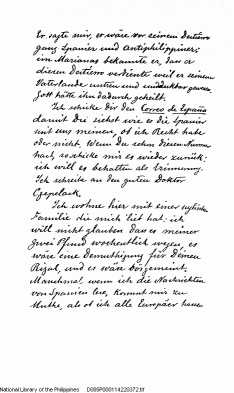 Er sagte mir, er wäre vor seinem Deitierro
ganz Spanier und Antiphilippiner;
im Marianas bekannte er, dass er
diesen Deitierro verdiente weil er seinem
Vaterlande untreu und undankbar gewesen
Gott hätte ihn dadurch geheilt.
Ich schicke dir den Correo de España
damit du siehst wie es die Spanier
mit uns meinen, ob ich Recht habe
oder nicht. Wenn du sehn diesen Numm
hast, so schicke mir es wieder zurück:
ich will es behalten als Erinnerung.
Ich schreibe an den guten Doktor
Czepelack.
Ich wohne hier mit einer
Familie die mich lieb hat: ich
will nicht glauben dass es meiner
zwei Pfund wochentlich wegen, es
wäre eine Demuthigung für Deinen
Rizal, und es wäre bösgemeint.
Manchmal wenn ich die Nachrichten
von Spanien lese, kommt mir zu
Muthe, als ob ich alle Europäer hasse
National Library of the Philippines D085P000114220372.tif